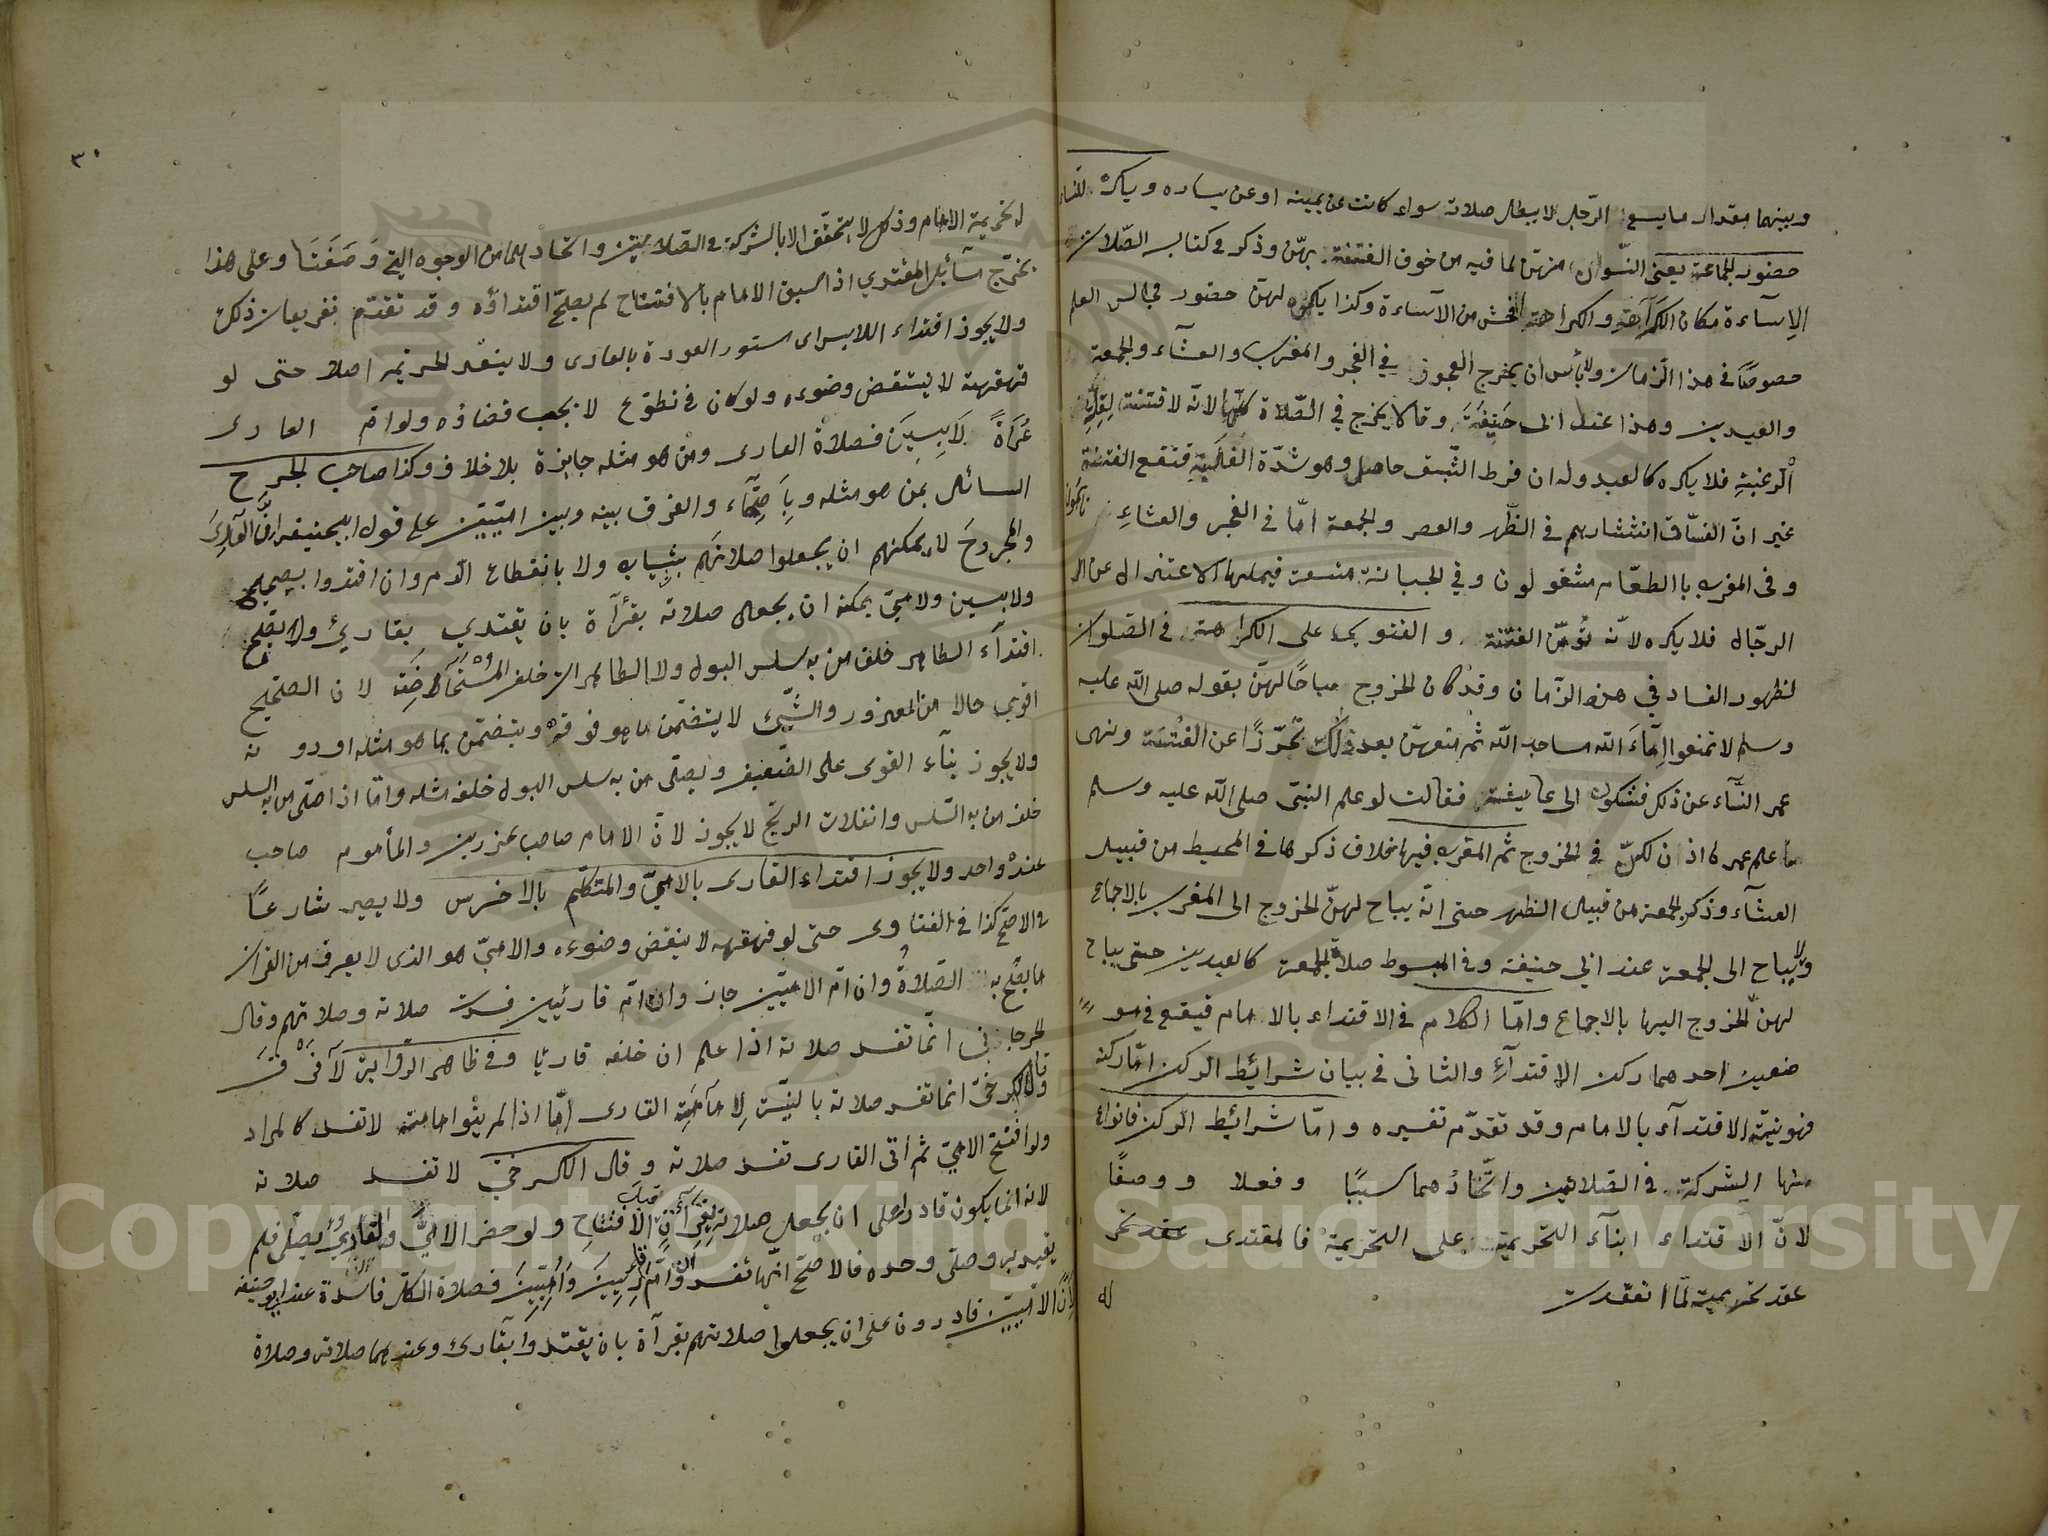 وبينهما مقدار ما يسع الرّجل لا يبطل صلاته سواء كانت عن يمينه او عن يساره ويكره للنساء
حضور الجماعة يعني النسوان منهن لما فيه من خوف الفتنة بهن وذكر في كتاب الصلاة
الإسآءة مكان الكَرَاهَةِ والكراهة افحش من الآساءة وكذا يكره لهنّ حضور مجالس العلم
خصوصًا في هذا الزمان ولا بأس ان يخرج العجوز في الفجر والمغرب والعشآء والجمعة
والعيدين وهذا عند ابى حَنِيفَةَ وقالا يخرج في الصّلاة كلّها لانه لا فتنة لِقِلَّةِ
الْرغبةِ فلا يكره كالعيد وله ان فرط الشّبق حاصل وهو شدّة الغَلَمَةِ فتقع الفتنة
غير انّ الفسّاق انتشارهم في الظّهر والعصر والجمعة امّا في الفجر والعشاءِ نائمون
وفى المغرب باالطعّام مشغولون وفي الجبانة متسعة فيمكنها الاعتزال عن الر
الرجّال فلا يكره لانّه تُؤمَنُ الفتنة والفتوى على الكراهة في الصّلوات
لظهور الفساد في هذه الزّمان وقد كان الخروج مباحًا لهنّ بقوله صلى الله عليه
وسلم لا تمنعوا اِمَآءَ الله مساجد الله ثُم منعهنّ بعد ذلك تحرّزًا عن الفُتنَة ونهى
عمر النسآء عن ذلك فشكون الى عايشة فقالت لو علم النبيّ صلى الله عليه وسلم
ما علم عمر ما اذن لكنّ في الخروج ثم المغرب فيها خلاف ذكرها في المحيط من قبيل
العشآء وذكر الجمعة من قبيل الظهر حتى انّه يباح لهنّ الخروج الى المغرب بالاجماع
ولا يباح الى الجمعة عند ابي حنيفة وفي المبسوط صلاة الجمعة كالعيدين حتى يباح
لهنّ الخروج اليها بالاجماع وامّا الكلام في الاقتداء بالامام فيقع في مو
ضعين احدهما ركن الاقتدآءِ والثانى في بيان شرائط الركن امّا ركنه
فهو نيّة الاقتدآء بالامام وقد تقدّم تفسيره وامّا شرائيط الركن فانواع
منها الشركة في الصّلاتين واتّحادُهما سببًا وفعلا ووصفًا
لانّ الاقتداء ابنآء التحريمة على التحريمة فالمقتدى عقد تحر
عقد تحريمته لمّا انعقدت له
٣٠
له تحريمة الامام وذلك لا يتحقّق الا بالشركة في الصّلاتين واتحادهما من الوجوه التي وَصَفْنَا وعلى هذا
يخرّج مسآئل المقتدي اذا سبق الامام بالافتتاح لم يصلحّ اقتداؤه وقد تقدّم تفريعات ذلك
ولا يجوز اقتداء اللابس اى مستور العورة بالعارى ولا ينعقد تحريمه اصلا حتى لو
قهقهة لا ينتقض وضوءه ولو كان في تطوّع لا يجب قضاؤه ولو امّ العارى
عُرَاةً لاَبِسِيَن فصلاة العارى ومن هو مثله جايزة بلا خلاف وكذا صاحب الجرح
السائل بمن هو مثله وبِاَصِحَّآء والفرق بينه وبين امّيّين على قول ابيحنيفة انّ العُراةَ
والجروحَ لا يمكنهم ان يجعلوا صلاتهَم بثياب ولا بانقطاع الدّم وان اقتدوا بصحيح
ولابسين ولامّيّ يمكنه ان يجعل صلاته بقرآة بان يقتدي بقاريئ ولا يصلح
اقتدآء الطاهر خلف من به سلس البول ولا الطاهرات خلف المُسْتَحَاضَةِ لان الصحيح
اقوى حالا من المعزور والشّيئ لا يتضمّن ما هو فوقه ويتضمّن بما هو مثله او دونه
ولا يجوز بنآء القوى على الضّعيف ويصلّى من به سلس البول خلف مثله وامّا اذا صلّى من به السلس
خلف من به السّلس وانفلات الريح لا يجوز لانّ الامام صاحب عذرين والمأموم صاحب
عذر واحد ولا يجوز اقتداء القارى بالامّيّ والمتكلّم بالاخرس ولا يصير شارعًا
في الاصحّ كذا في الفتاوى حتى لو قهقهه لا ينقض وضوءه والامّيّ هو الذى لا يعرف من القرأن
ما يصحّ به الصّلاةُ وان امّ الامّيّين جاز وان امّ قارئين فسدت صلاته وصلاتهم وقال
الجرجاني انّما تفسد صلاته اذا علم ان خلفه قاريًا وفي ظاهر الرّواية لاَ فَرْقَ
وقال الكرخيّ انما تفسد صلاته بالنيّة لِاِمآمَةِ القارى امّا اذا لم ينو امامته لا تفسد كالمراة
ولو افتتح الامّيّ ثم اتى القارى تفسد صلاته وقال الكرخيّ لا تفسد صلاته
لانه انما يكون قادرا على ان يجعل صلاته بِقِرآءَةٍ قبل الافتتاحِ ولو حضر الامّيَُ والقارئ يصلّى فلم
يقتد به وصلى وحده فالاصحّ انّها تفسد وان امَّ قارِئِيِينَ وَاُمِّيّينَ فصلاة الكلّ فاسدة عند ابى حنيفة
لانَّ الامّيّين قادرون على ان يجعلوا صلاتهم بقرآة بان يقتدوا بقارئ وعندهما صلاته وصلاة
Copyright © King Saud University